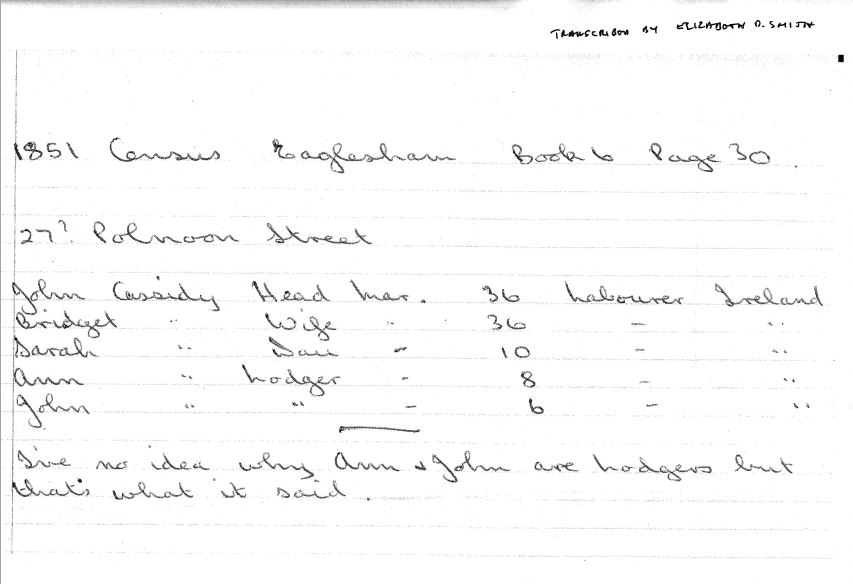 TRANSCRIBED BY ELIZABETH D. SMITH
1851 Census Eaglesham Book 6 Page 30.
27? Polnoon Street
John Cassidy Head Mar. 36 Labourer Ireland
Bridget " Wife - 36 - "
Sarah " Dau - 10 - "
Ann " Lodger - 8 - "
John " " - 6 - "
I've no idea why Ann & John are Lodgers but
that's what it said.